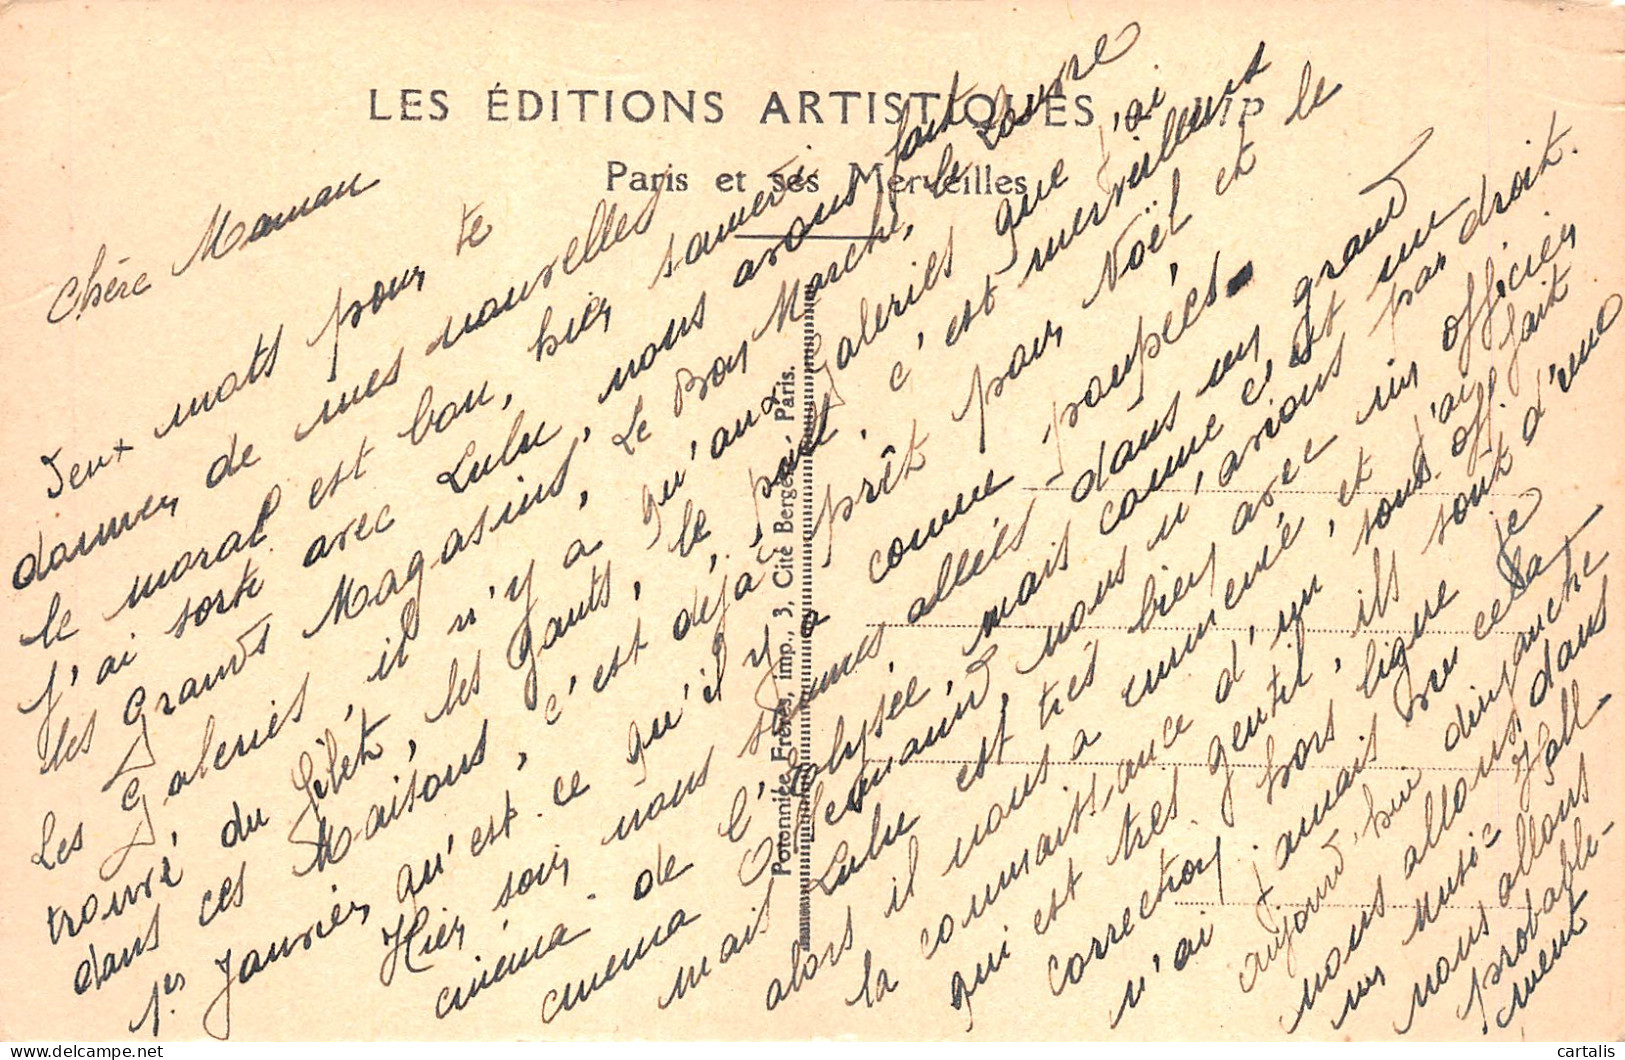 LES ÉDITIONS ARTISTIQUES
Paris et ses Merveilles
Chère Maman
Deux mots pour te
donner de mes nouvelles
le moral est bon, hier samedi
J'ai sorti avec Lulu, nous avons fait
les Grands Magasins, Le Bon Marché, le Louvre
Les Galeries, il n'y a qu'aux Galeries que j'ai
trouvé du filet, les gants, le point, c'est merveilleux
dans ces Maisons, c'est déjà prêt pour Noël et le
1er Janvier, qu'est ce qu'il y a comme poupées.
Hier soir nous sommes allées dans un grand
cinéma de l'Élysée, mais comme c'est un
cinéma Allemand nous n'avions pas droit.
mais Lulu est très bien avec un officier
alors il nous a emmené, et j'ai fait
la connaissance d'un sous off.
qui est très gentil, ils sont d'une
correction hors ligne je
n'ai jamais vu cela
aujourd'hui dimanche
nous allons dans
un Music Hall
nous allons
probable-
ment
Potonniée Frères, imp., 3, Cité Bergère, Paris.
cartalis